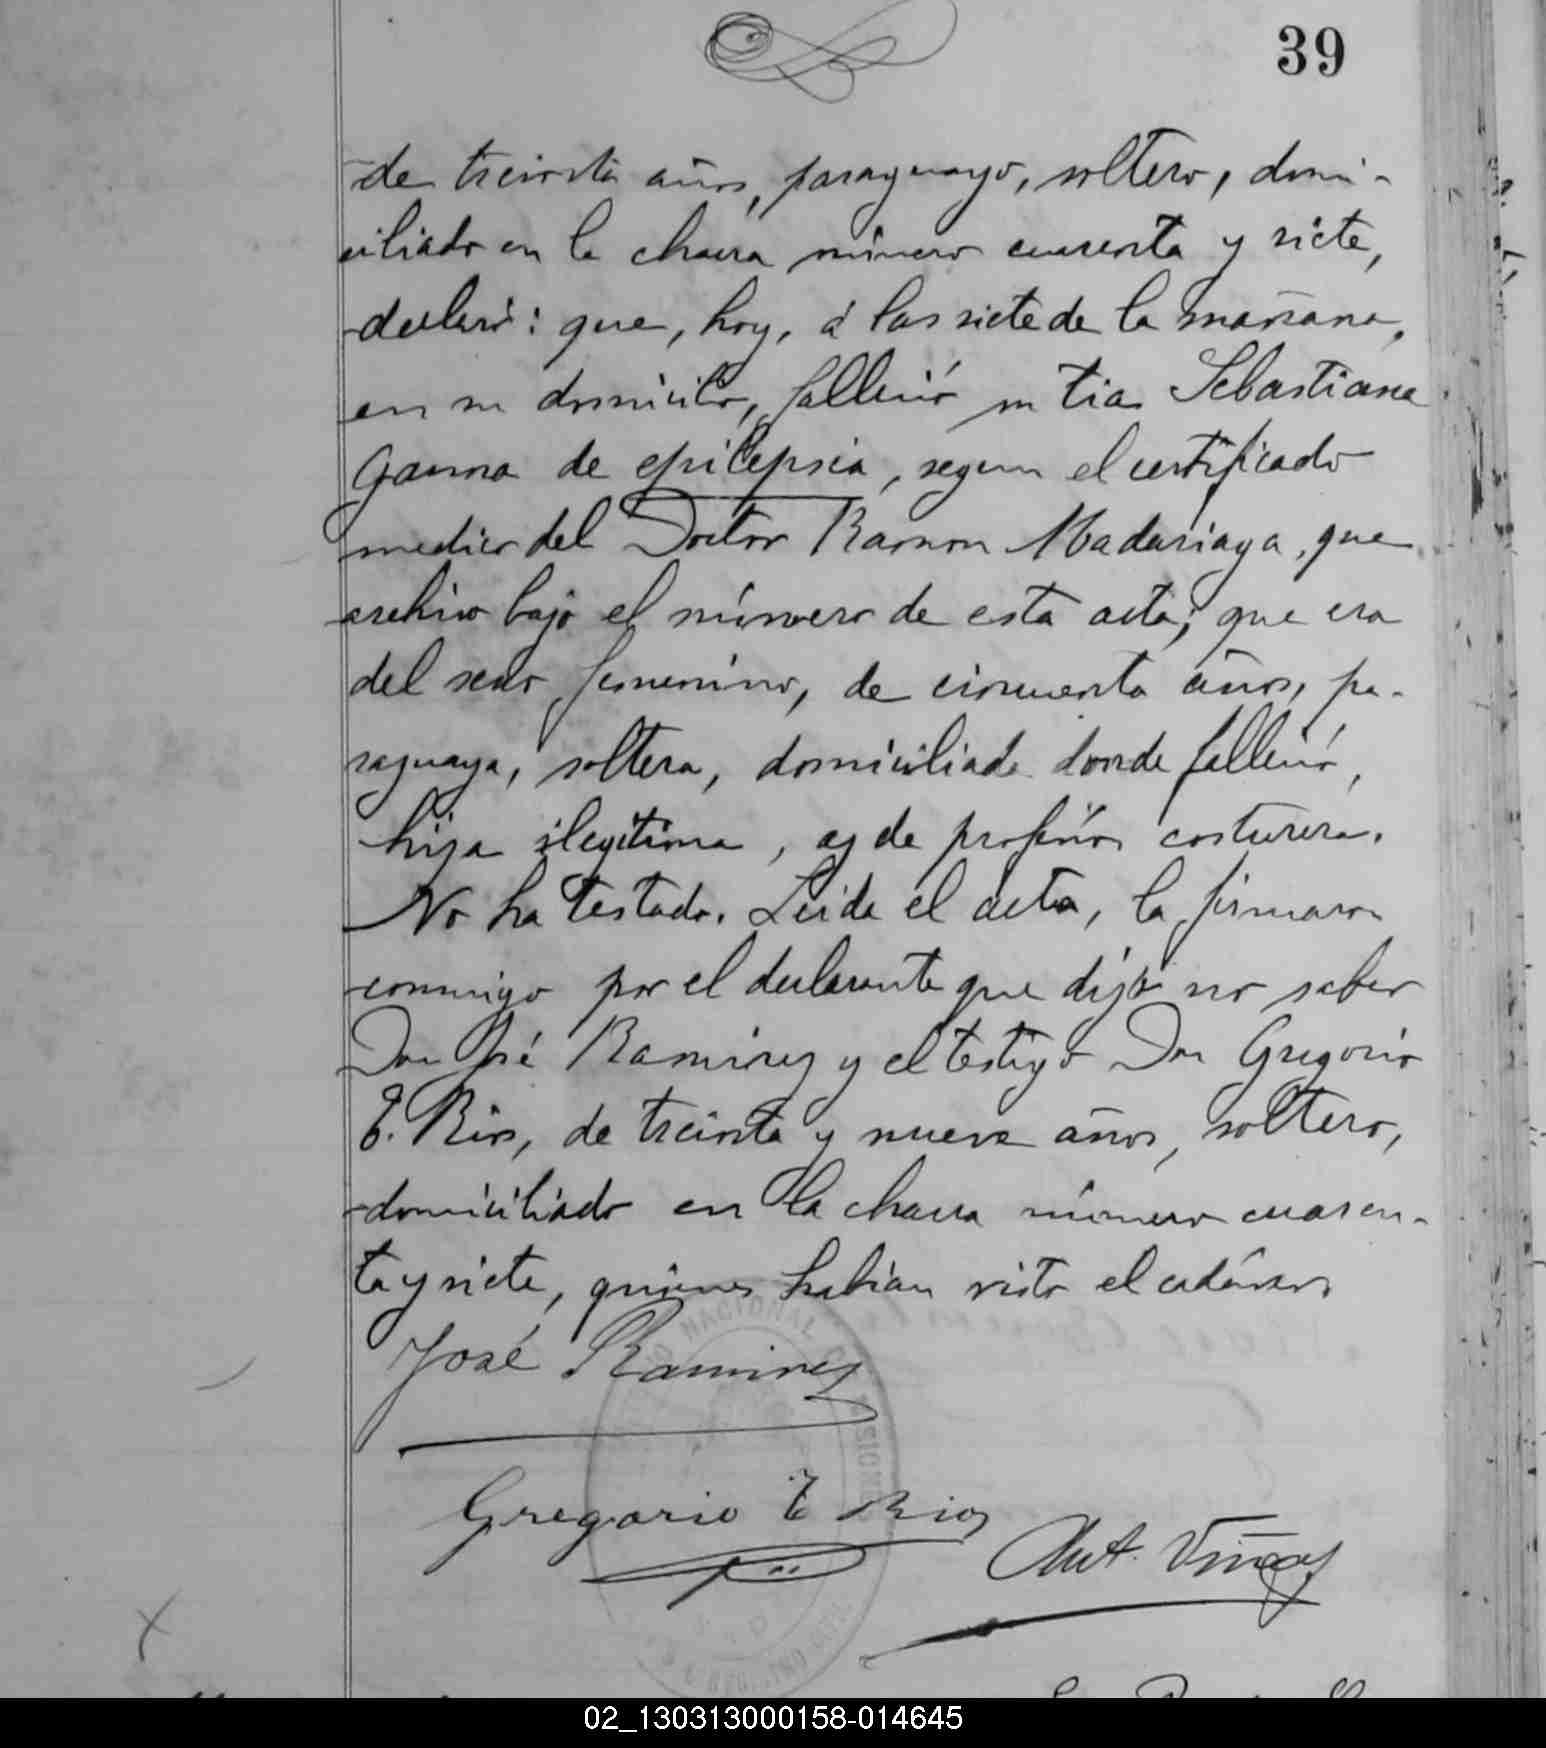 39
de treinta años, paraguayo, soltero, domi-
ciliado en la chacra número cuarenta y siete,
declaró: que, hoy, á las siete de la mañana,
en su domicilio, falleció su tia Sebastiana
Gauna de epilepsia, segun el certificado
medico del Doctor Ramon Madariaga, que
archivo bajo el número de esta acta; que era
del sexo femenino, de cincuenta años, pa-
raguaya, soltera, domiciliada donde falleció,
hija ilegitima, y de profesión costurera.
No ha testado. Leida el acta, la firmaron
conmigo por el declarante que dijo no saber
Don José Ramirez y el testigo Don Gregorio
T. Rios, de treinta y nueve años, soltero,
domiciliado en la chacra número cuaren-
ta y siete, quienes habian visto el cadáver
José Ramirez
Gregorio T Rios
Ant. Viñas
NACIONAL
02_130313000158-014645